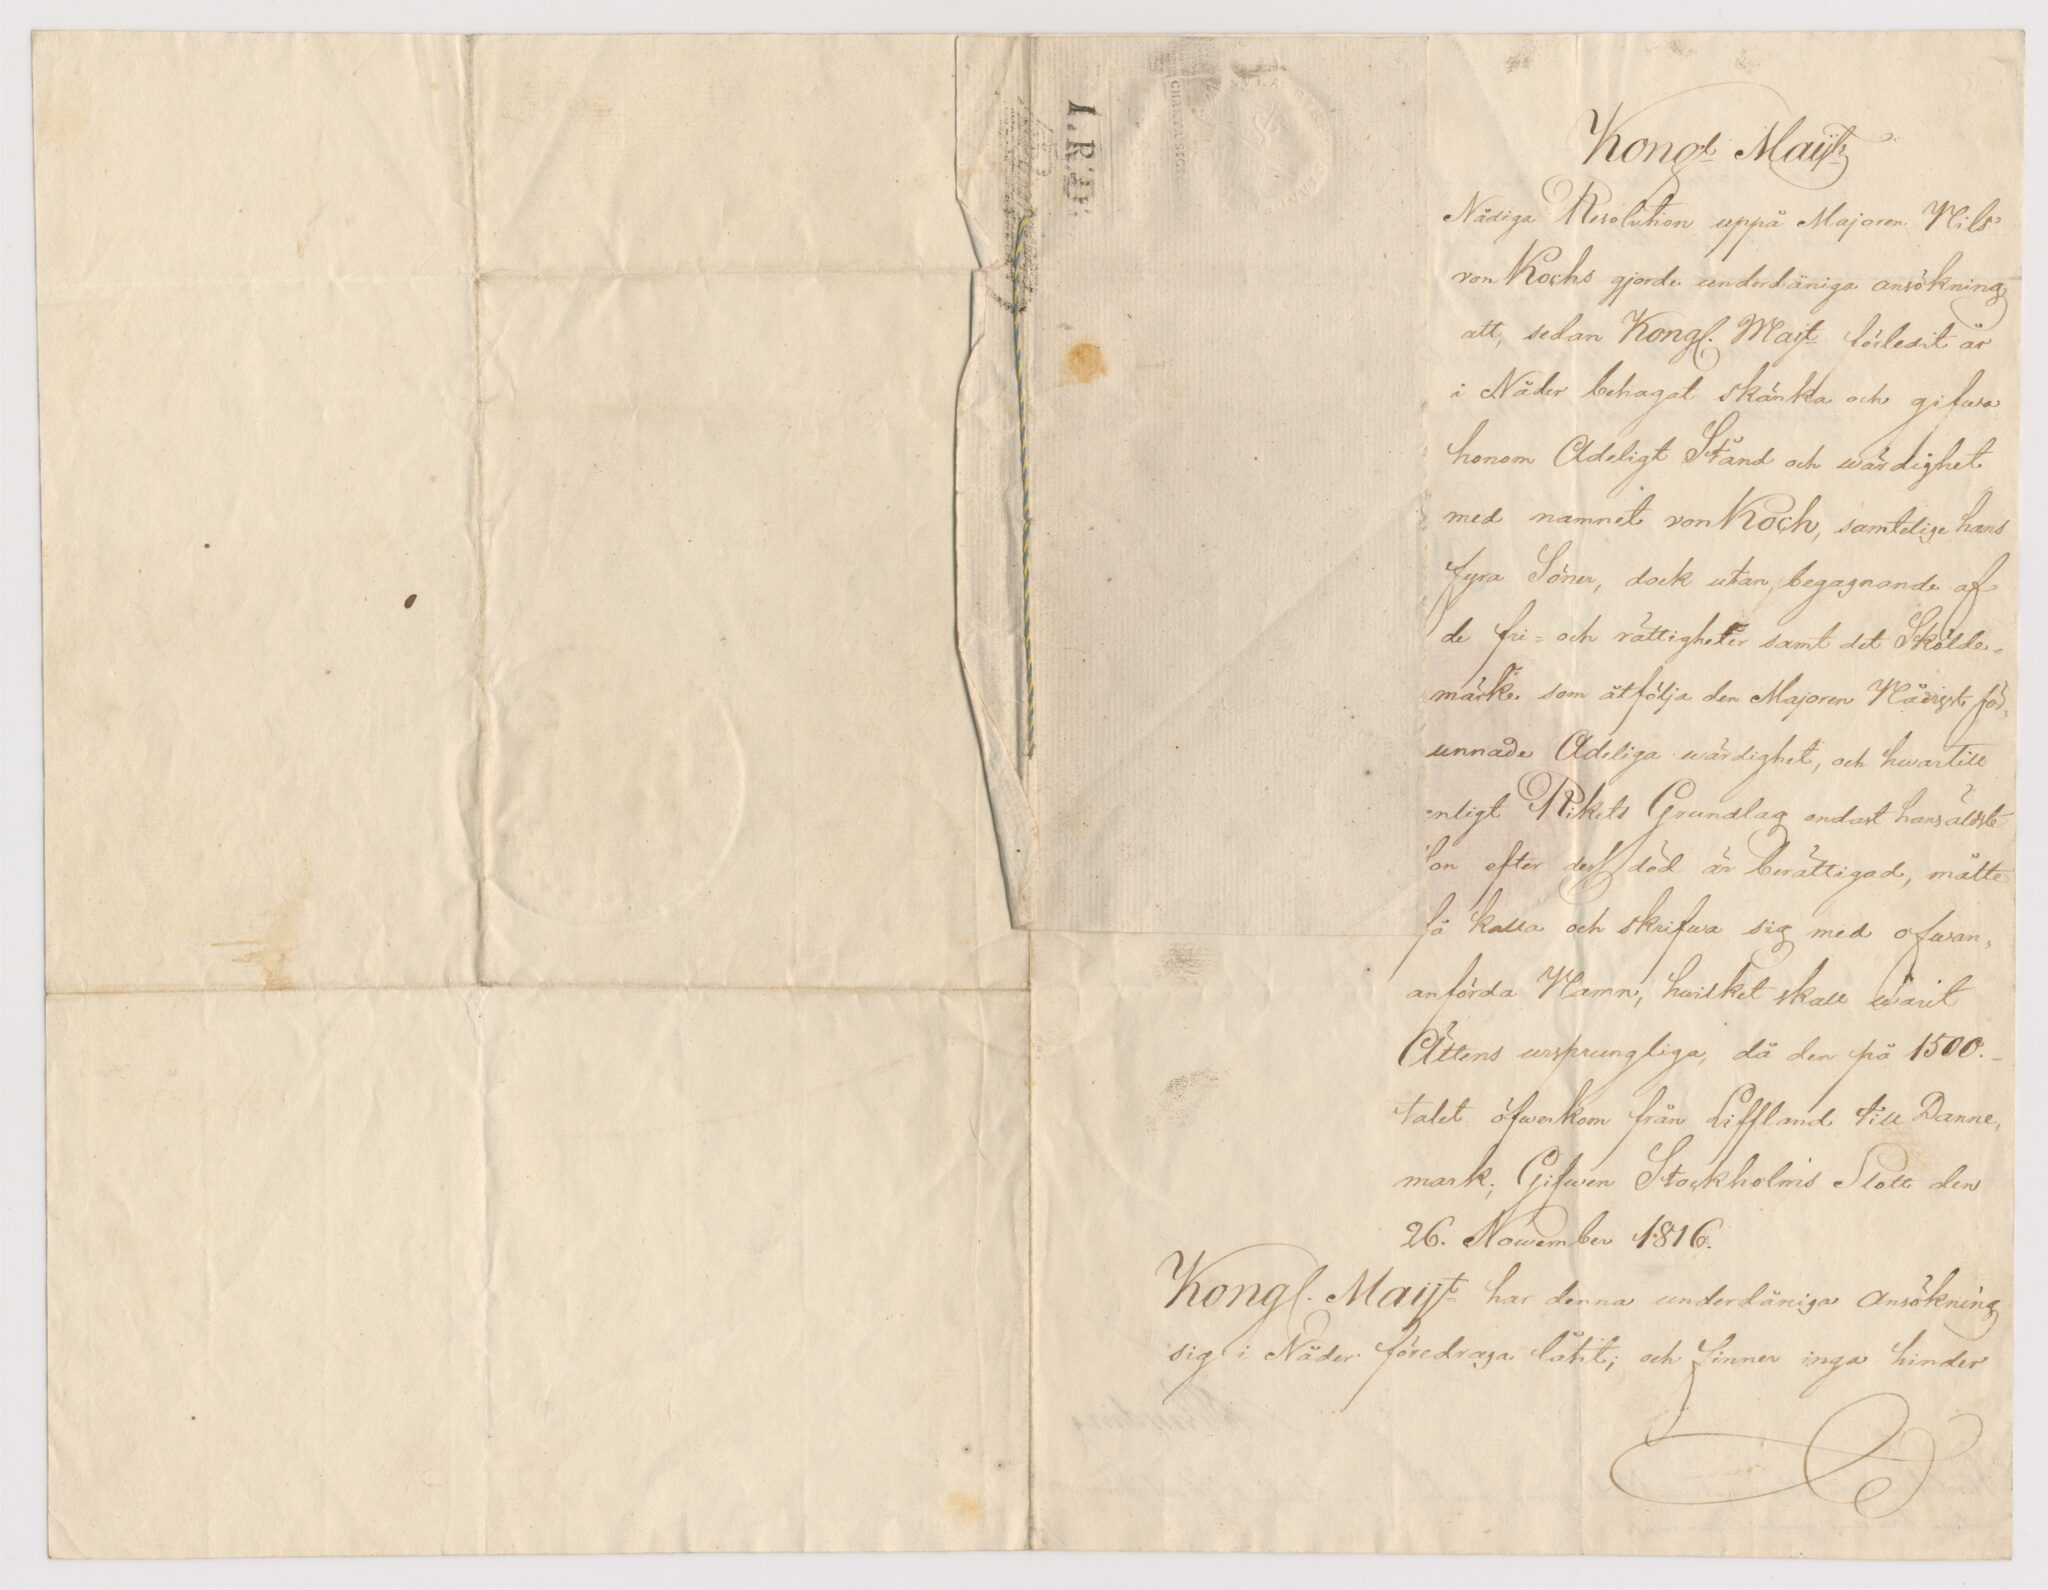 I.R.D.
CHARTA SIGI
Kongl. Maijts
Nådiga Resolution uppå Majoren Nils
von Kochs gjorde underdåniga ansökning
att, sedan Kongl. Maijt förledit år
i Nåder behagat skänka och gifwa
honom Adeligt Stånd och wärdighet
med namnet von Koch, samtelige hans
fyra Söner, dock utan begagnande af
de fri- och rättigheter samt det Skölde-
märke som åtfölja den Majoren Nådigst för-
unnade Adeliga wärdighet, och hwartill
enligt Rikets Grundlag endast hans äldste
Son efter dess död är berättigad, måtte
få kalla och skrifwa sig med ofwan-
anförda Namn, hwilket skall warit
Ättens ursprungliga, då den på 1500.-
talet öfwerkom från Liffland till Danne-
mark; Gifwen Stockholms Slott den
26. November 1816.
Kongl. Maijt har denna underdåniga ansökning
sig i Nåder föredraga låtit; och finner inga hinder